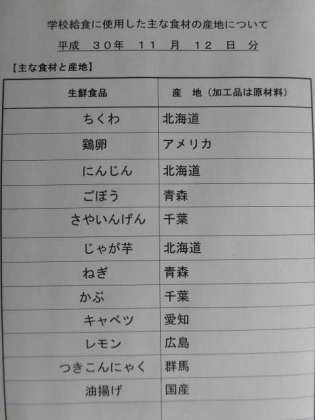 学校給食に使用した主な食材の産地について
平成 30年 11 月 12 日 分
【主な食材と産地】
生鮮食品 産 地（加工品は原材料）
ちくわ 北海道
鶏卵 アメリカ
にんじん 北海道
ごぼう 青森
さやいんげん 千葉
じゃが芋 北海道
ねぎ 青森
かぶ 千葉
キャベツ 愛知
レモン 広島
つきこんにゃく 群馬
油揚げ 国産